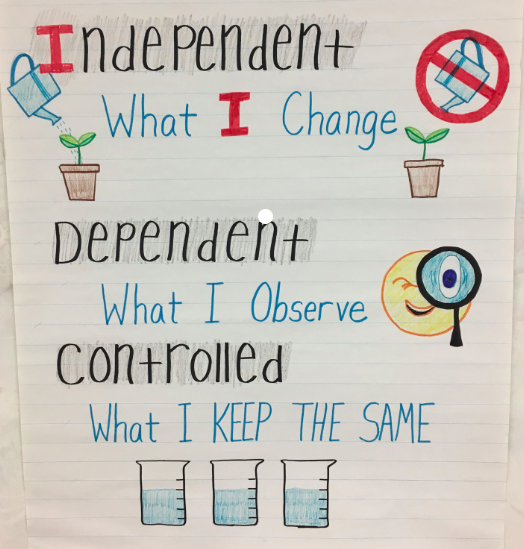 Independent
What I Change
Dependent
What I Observe
Controlled
What I KEEP THE SAME